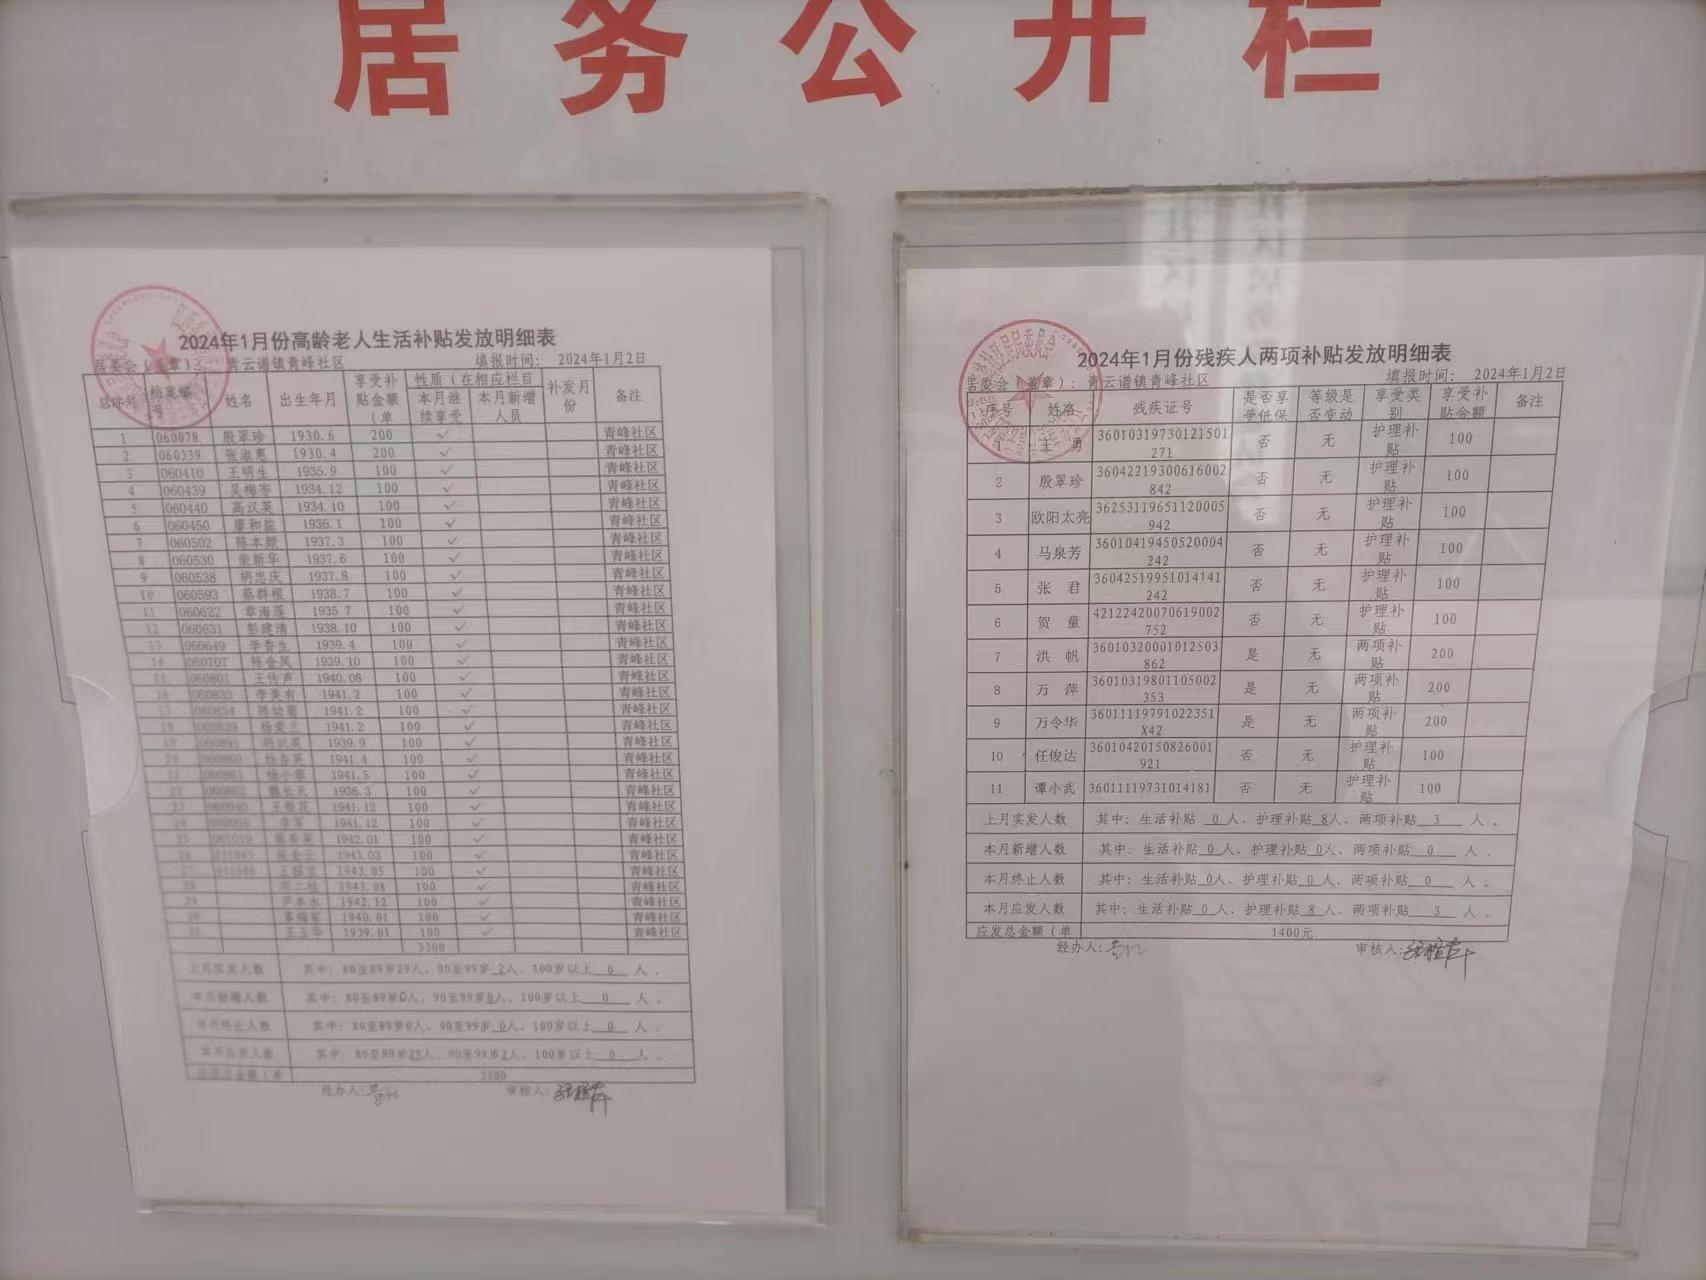 居务公开栏
2024年1月份高龄老人生活补贴发放明细表
居委会(盖章): 青云谱镇青峰社区 填报时间: 2024年1月2日
总序号 档案编号 姓名 出生年月 享受补贴金额(单 性质(在相应栏目 本月继续享受 本月新增人员 补发月份 备注
1 060078 殷翠珍 1930.6 200 ✓ 青峰社区
2 060339 张淑惠 1930.4 200 ✓ 青峰社区
3 060410 王明生 1935.9 100 ✓ 青峰社区
4 060439 吴梅岑 1934.12 100 ✓ 青峰社区
5 060440 高汉英 1934.10 100 ✓ 青峰社区
6 060450 廖和盐 1936.1 100 ✓ 青峰社区
7 060502 陈本颖 1937.3 100 ✓ 青峰社区
8 060530 荣新华 1937.6 100 ✓ 青峰社区
9 060538 胡忠庆 1937.8 100 ✓ 青峰社区
10 060593 蔡群根 1938.7 100 ✓ 青峰社区
11 060622 章海莲 1935.7 100 ✓ 青峰社区
12 060631 彭建清 1938.10 100 ✓ 青峰社区
13 060649 李香生 1939.4 100 ✓ 青峰社区
14 060707 陈金凤 1939.10 100 ✓ 青峰社区
15 060801 王传声 1940.08 100 ✓ 青峰社区
16 060833 李美有 1941.2 100 ✓ 青峰社区
17 060834 陈幼菊 1941.2 100 ✓ 青峰社区
18 060839 杨爱兰 1941.2 100 ✓ 青峰社区
19 1939.9 100 ✓ 青峰社区
20 1941.4 100 ✓ 青峰社区
1941.5 100 ✓ 青峰社区
1936.3 100 ✓ 青峰社区
23 1941.12 100 ✓ 青峰社区
24 李军 1941.12 100 ✓ 青峰社区
25 1942.01 100 ✓ 青峰社区
1943.03 100 ✓ 青峰社区
1943.05 100 ✓ 青峰社区
1943.08 100 ✓ 青峰社区
1942.12 100 ✓ 青峰社区
1940.01 100 ✓ 青峰社区
王玉华 1939.01 100 ✓ 青峰社区
3300
上月实发人数 其中: 80至89岁29人、90至99岁 2人、100岁以上 0 人。
本月新增人数 其中: 80至89岁0人、90至99岁0人、100岁以上 0 人。
本月终止人数 其中: 80至89岁0人、90至99岁 0人、100岁以上 0 人。
本月应发人数 其中: 80至89岁29人、90至99岁2人、100岁以上 0 人。
3300
经办人: 审核人:
2024年1月份残疾人两项补贴发放明细表
居委会(盖章): 青云谱镇青峰社区 填报时间: 2024年1月2日
序号 姓名 残疾证号 是否享受低保 等级是否变动 享受类别 享受补贴金额 备注
1 王 勇 36010319730121501271 否 无 护理补贴 100
2 殷翠珍 36042219300616002842 否 无 护理补贴 100
3 欧阳太亮 36253119651120005942 否 无 护理补贴 100
4 马泉芳 36010419450520004242 否 无 护理补贴 100
5 张 君 36042519951014141242 否 无 护理补贴 100
6 贺 童 42122420070619002752 否 无 护理补贴 100
7 洪 帆 36010320001012503862 是 无 两项补贴 200
8 万 萍 36010319801105002353 是 无 两项补贴 200
9 万令华 36011119791022351X42 是 无 两项补贴 200
10 任俊达 36010420150826001921 否 无 护理补贴 100
11 谭小武 36011119731014181 否 无 护理补贴 100
上月实发人数 其中: 生活补贴 0 人、护理补贴 8人、两项补贴 3 人。
本月新增人数 其中: 生活补贴 0 人、护理补贴 0人、两项补贴 0 人。
本月终止人数 其中: 生活补贴 0人、护理补贴 0 人、两项补贴 0 人。
本月应发人数 其中: 生活补贴 0 人、护理补贴 8 人、两项补贴 3 人。
应发总金额(单 1400元
经办人: 审核人: